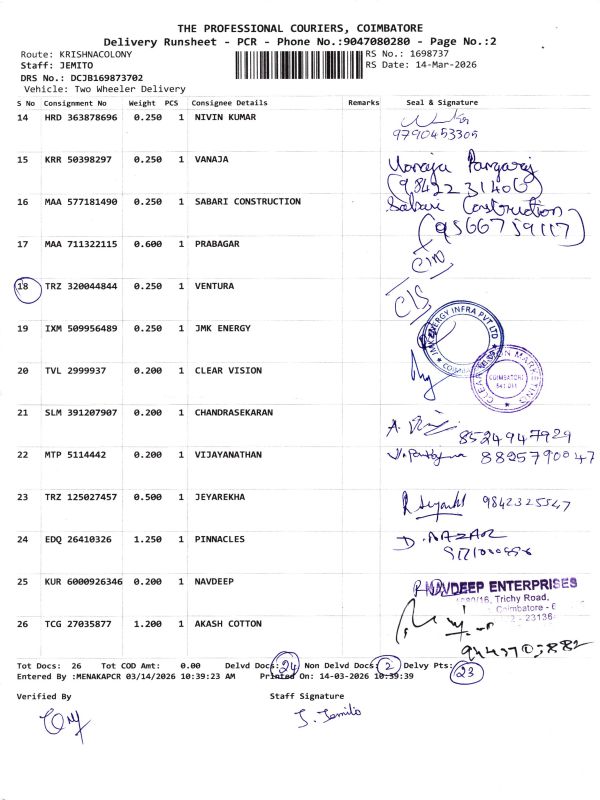 THE PROFESSIONAL COURIERS, COIMBATORE
Delivery Runsheet - PCR - Phone No.:9047080280 - Page No.:2
Route: KRISHNACOLONY RS No.: 1698737
Staff: JEMITO RS Date: 14-Mar-2026
DRS No.: DCJB169873702
Vehicle: Two Wheeler Delivery
S No Consignment No Weight PCS Consignee Details Remarks Seal & Signature
14 HRD 363878696 0.250 1 NIVIN KUMAR
9790453305
15 KRR 50398297 0.250 1 VANAJA Vanaja Pangaraj
(9842231406)
16 MAA 577181490 0.250 1 SABARI CONSTRUCTION Sabari Construction
(9566759117)
17 MAA 711322115 0.600 1 PRABAGAR
18 TRZ 320044844 0.250 1 VENTURA
19 IXM 509956489 0.250 1 JMK ENERGY JMK ENERGY INFRA PVT LTD
20 TVL 2999937 0.200 1 CLEAR VISION CLEAR VISION MARKETING
COIMBATORE
641 011
21 SLM 391207907 0.200 1 CHANDRASEKARAN 8524947929
22 MTP 5114442 0.200 1 VIJAYANATHAN 8825790047
23 TRZ 125027457 0.500 1 JEYAREKHA 9842325547
24 EDQ 26410326 1.250 1 PINNACLES D. NAZAR
25 KUR 6000926346 0.200 1 NAVDEEP NAVDEEP ENTERPRISES
Trichy Road,
Coimbatore - 6
26 TCG 27035877 1.200 1 AKASH COTTON
Tot Docs: 26 Tot COD Amt: 0.00 Delvd Docs: 24 Non Delvd Docs: 2 Delvy Pts: 23
Entered By :MENAKAPCR 03/14/2026 10:39:23 AM Printed On: 14-03-2026 10:39:39
Verified By Staff Signature
J. Jemito